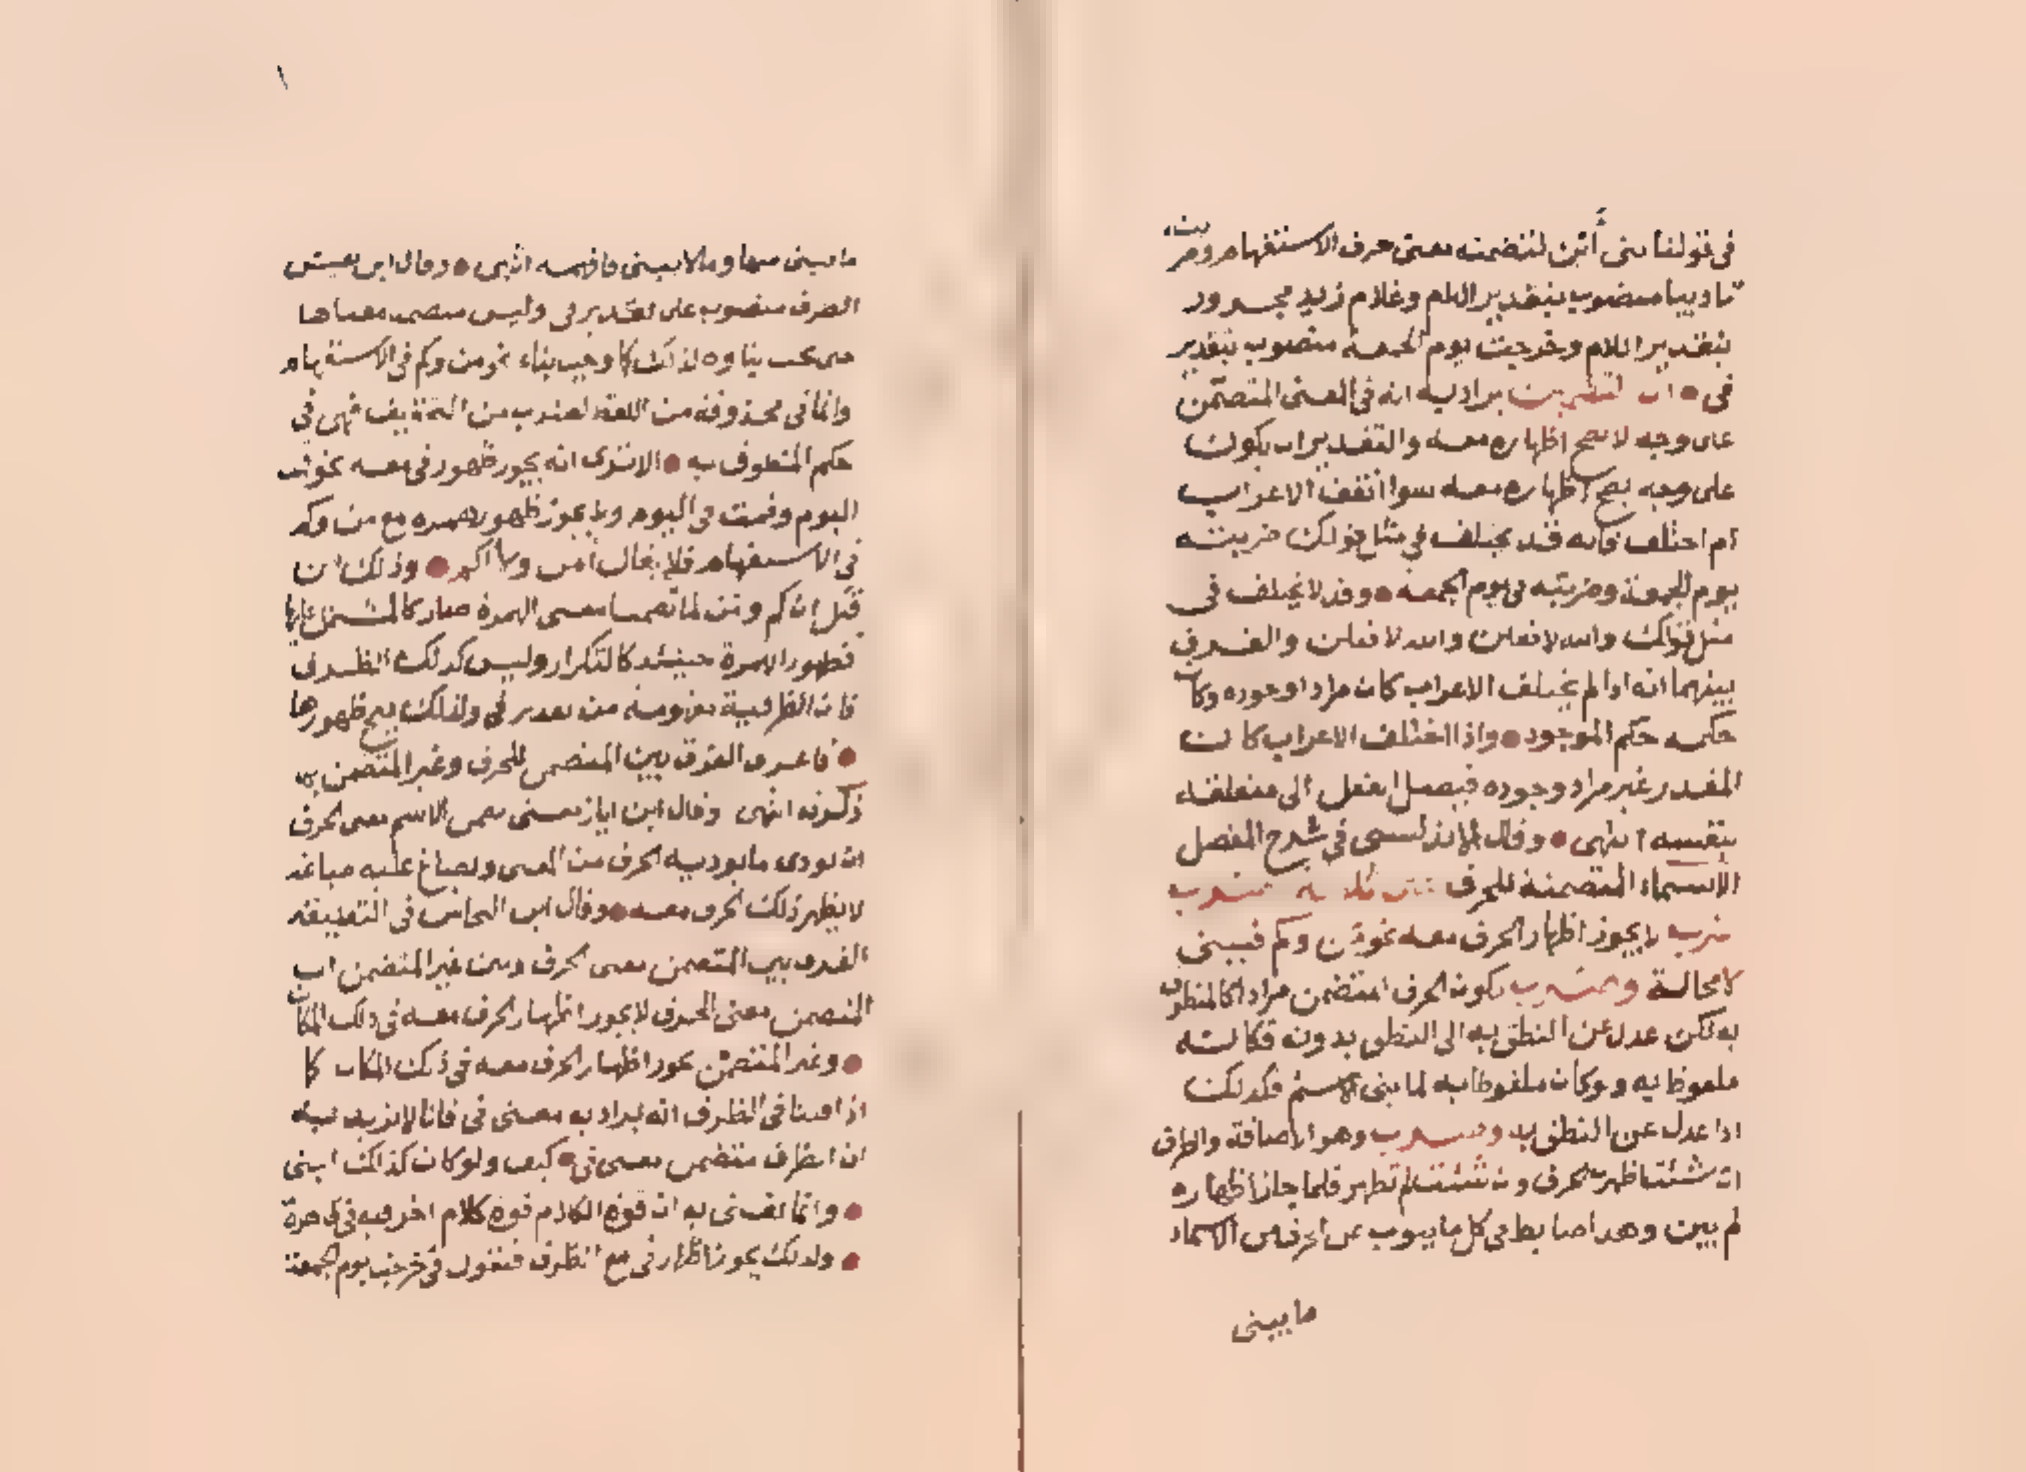 في قولنا بنى أين لتضمنه معنى حرف الاستفهام وضربته
تاديبا منصوب بتقدير اللام وغلام زيد مجرور
بتقدير اللام وخرجت يوم الجمعة منصوب بتقدير
في • ان التضمين يراد به انه في المعنى المتضمن
على وجه لا يصح اظهاره معه والتقدير ان يكون
على وجه يصح اظهاره معه سوا اتفق الاعراب
ام اختلف فانه قد يختلف في مثل قولك ضربته
يوم الجمعة وضربته في يوم الجمعه • وقد لا يختلف في
مثل قولك والله لافعلن والله لافعلن والفرق
بينهما انه اذا لم يختلف الاعراب كان مرادا وجوده وكان
حكمه حكم الموجود • واذا اختلف الاعراب كان
المقدر غير مراد وجوده فيصل الفعل الى متعلقه
بنفسه انتهى • وقال الاندلسى في شرح المفصل
الاسماء المتضمنة للحرف على ثلاثة اضرب
ضرب لا يجوز اظهار الحرف معه نحو من وكم فيبنى
لا محالة وضرب يكون الحرف المتضمن مرادا كالمنطوق
به لكن عدل عن النطق به الى النطق بدونه فكانه
ملفوظ به ولو كان ملفوظا به لما بنى الاسم فكذلك
اذا عدل عن النطق به وضرب وهو الاضافة والظرف
ان شئت اظهرت الحرف وان شئت لم تظهر فلما جاز اظهاره
لم يبن وهذا ضابط في كل ما ينوب عن الحرف من الاسماء
ما يبنى
ما يبنى منها وما لا يبنى فافهمه انتهى • وقال ابن يعيش
الظرف منصوب على تقدير في وليس متضمنا معناها
حتى يجب بناوه لذلك كما وجب بناء نحو من وكم في الاستفهام
وانما في محذوفة من اللفظ لضرب من التخفيف فهي في
حكم المنطوق به • الا ترى انه يجوز ظهور في معه نحو قمت
اليوم وقمت في اليوم ولا يجوز ظهور الهمزة مع من وكم
في الاستفهام فلا يقال امن ولا اكم • وذلك ان
من وكم لما تضمنا معنى الهمزة صارا كالمشتمل عليها
فظهور الهمزة حينئذ كالتكرار وليس كذلك الظرف
فان الظرفية مفهومة من تقدير في ولذلك يصح ظهورها
• فاعرف الفرق بين المتضمن للحرف وغير المتضمن بما
ذكرته انتهى وقال ابن اياز معنى تضمن الاسم معنى الحرف
ان يودى ما يوديه الحرف من المعنى ويصاغ عليه صياغة
لا يظهر ذلك الحرف معه • وقال ابن النحاس في التعليقة
الفرق بين المتضمن معنى الحرف وبين غير المتضمن ان
المتضمن معنى الحرف لا يجوز اظهار الحرف معه في ذلك المكان
• وغير المتضمن يجوز اظهار الحرف معه في ذلك المكان كما
اذا قلنا في الظرف انه يراد به معنى في فانا لا نريد به
ان الظرف متضمن معنى في • كيف ولو كان كذلك لبنى
• وانما نعنى به ان قوة الكلام قوة كلام اخر فيه في ظاهرة
• ولذلك يجوز اظهار في مع الظرف فتقول في خرجت يوم الجمعة